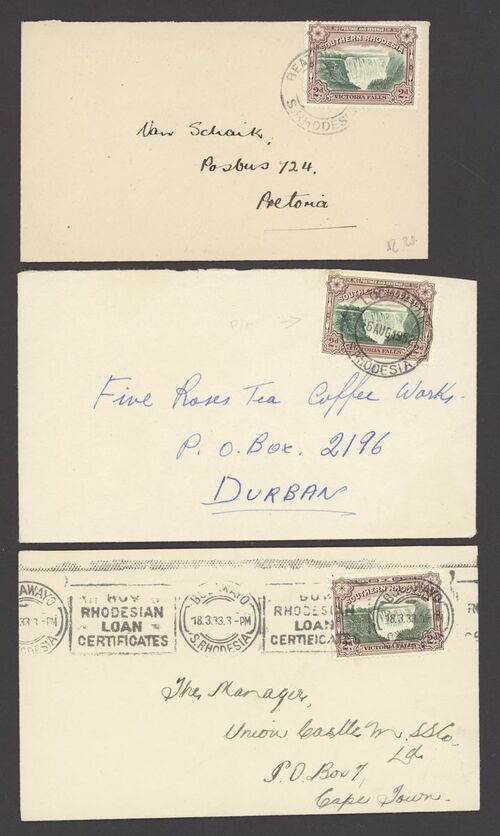 POSTAGE AND REVENUE
SOUTHERN RHODESIA
2d 2d
VICTORIA FALLS
S. RHODES
Van Schaik,
Posbus 724.
Pretoria
POSTAGE AND REVENUE
SOUTHERN RHODESIA
AUG 195
2d 2d
VICTORIA FALLS
RHODESIA
Five Roses Tea Coffee Works.
P. O. Box. 2196
DURBAN
BUY
RHODESIAN
LOAN
CERTIFICATES
BULAWAYO
18.3.33.3-PM
S. RHODESIA
BUY
RHODESI
LOAN
CERTIFICATES
SOUTHERN RHODESIA
18.3.33.3-PM
2d
VICTORIA FALLS
The Manager,
Union Castle M. SSCo,
Ltd
P.O. Box 7,
Cape Town.